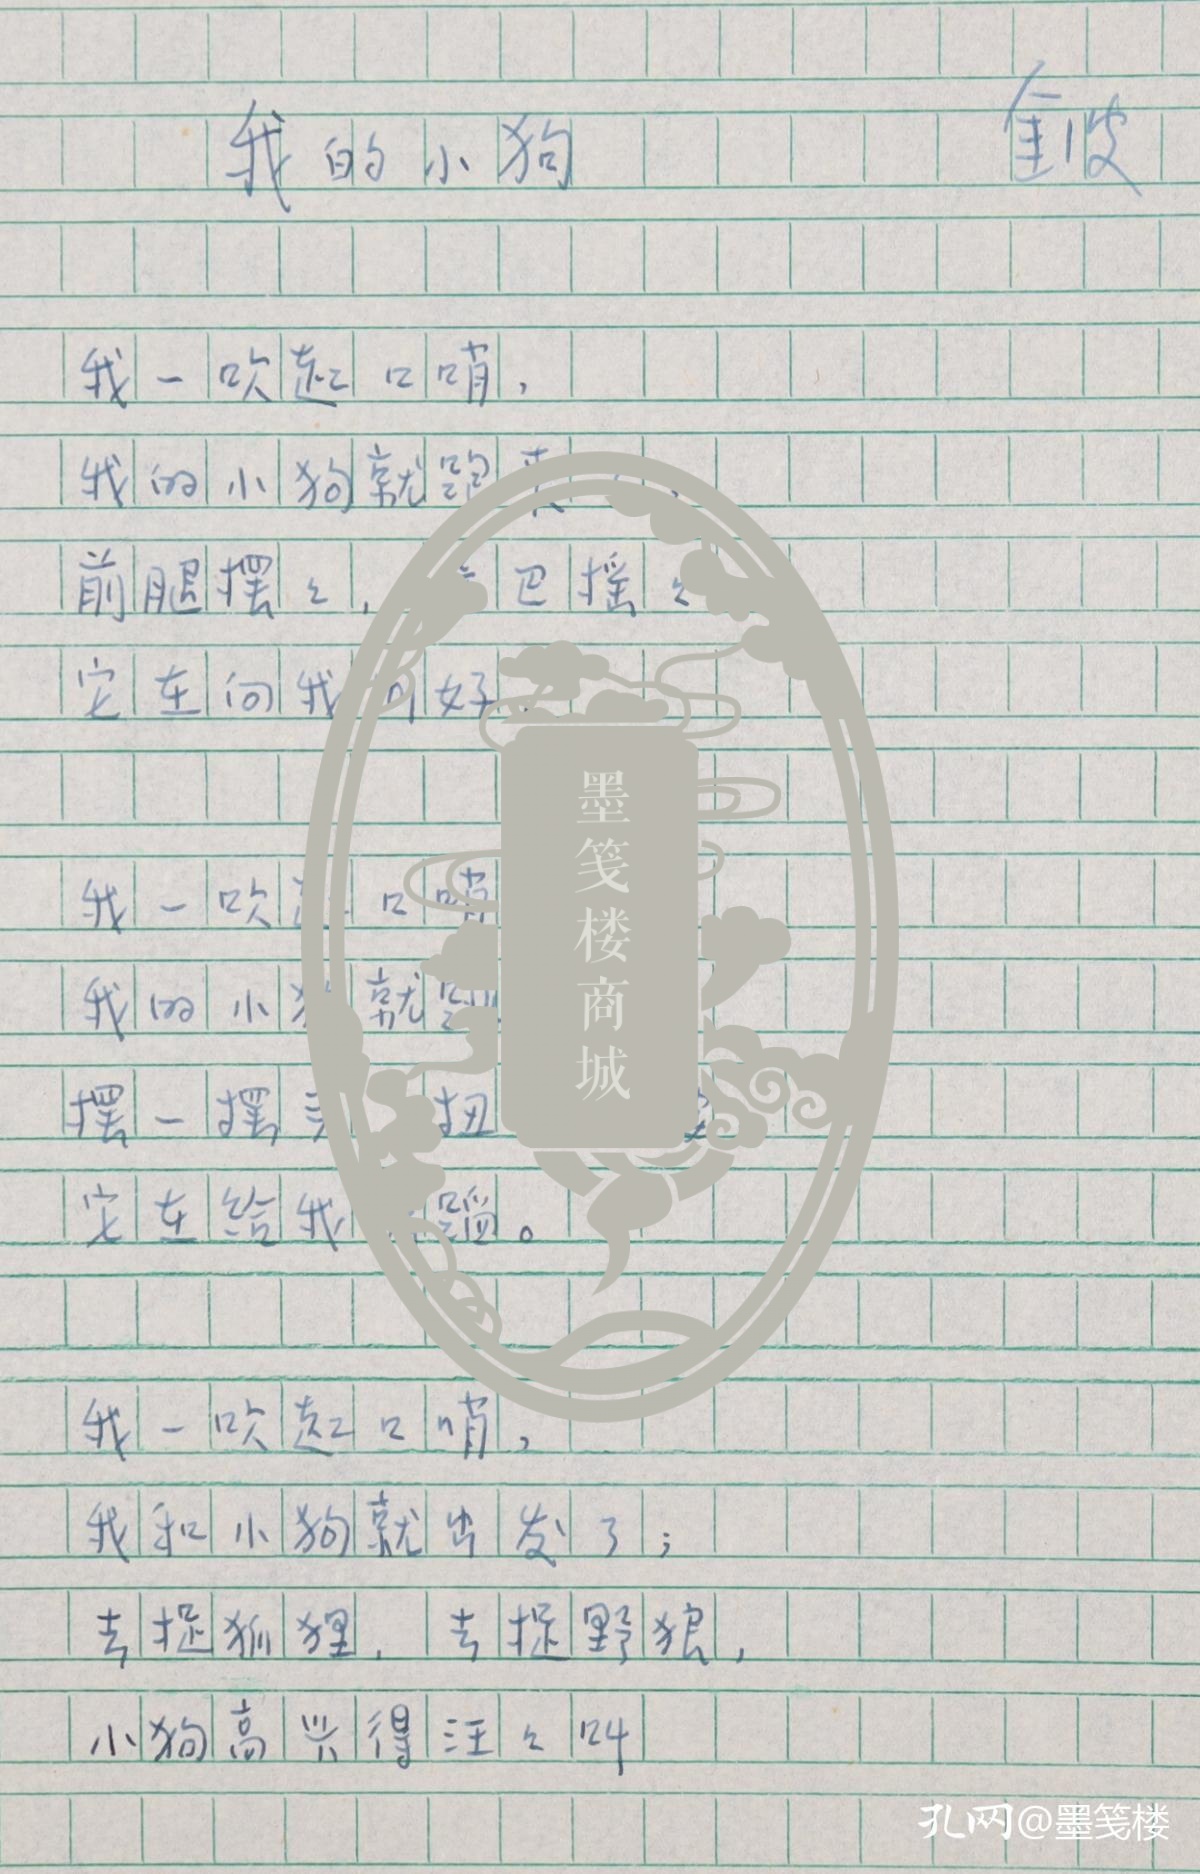 我的小狗 金波
我一吹起口哨，
我的小狗就跑来
前腿摆々，巴摇々
它在向我问好
我一吹口哨
我的小狗就跑
摆一摆头扭
它在给我蹈。
我一吹起口哨，
我和小狗就出发了；
去捉狐狸，去捉野狼，
小狗高兴得汪々叫
墨笺楼商城
孔网@墨笺楼